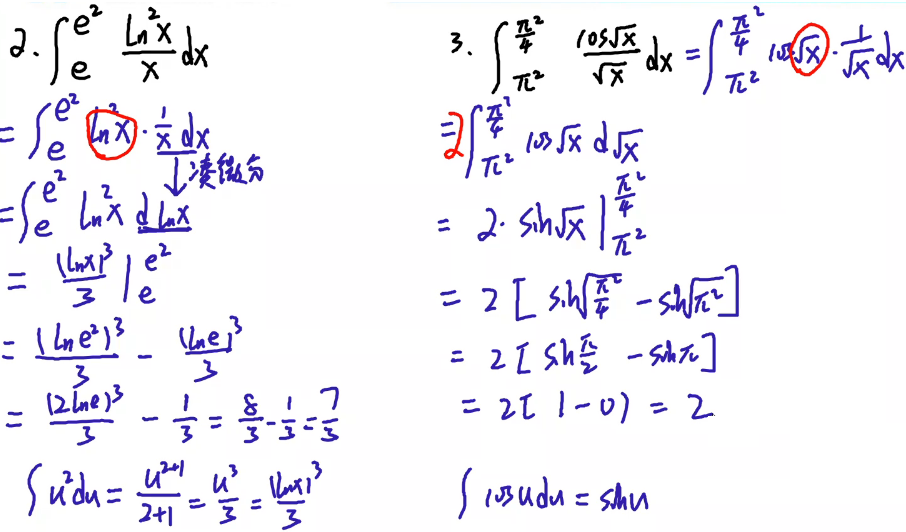 2. ∫_e^{e²} ln²x/x dx
= ∫_e^{e²} ln²x · 1/x dx
凑微分
= ∫_e^{e²} ln²x d lnx
= (lnx)³/3 |_e^{e²}
= (ln e²)³/3 − (ln e)³/3
= (2lne)³/3 − 1/3 = 8/3 − 1/3 = 7/3
∫ u² du = u^{2+1}/(2+1) = u³/3 = (lnx)³/3
3. ∫_{π²}^{π²/4} cos√x/√x dx = ∫_{π²}^{π²/4} cos√x · 1/√x dx
= 2∫_{π²}^{π²/4} cos√x d√x
= 2· sin√x |_{π²}^{π²/4}
= 2 [ sin√(π²/4) − sin√(π²) ]
= 2 [ sin π/2 − sinπ ]
= 2 [ 1 − 0 ) = 2
∫ cosudu = sinu